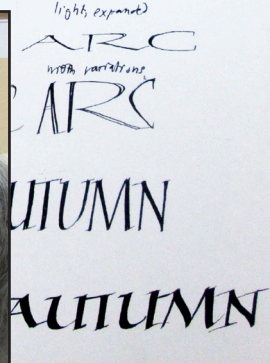 light, expanded
ARC
with variations
ARC
UTUMN
AUTUMN